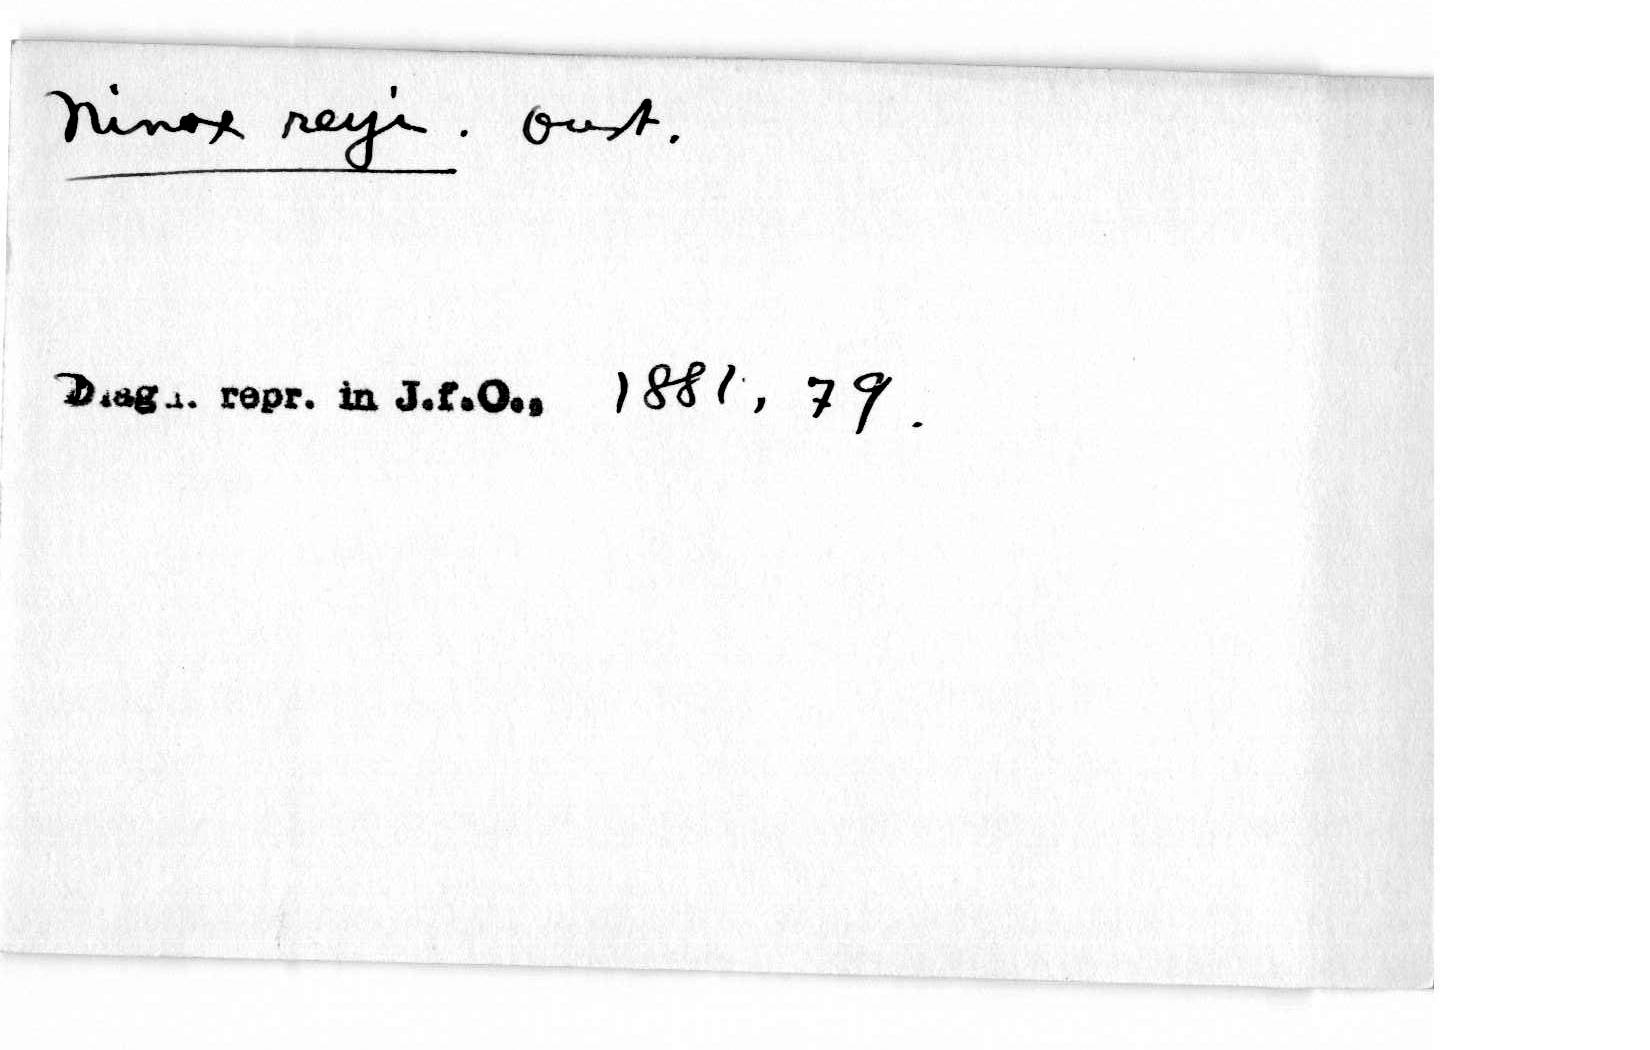 Ninox reyi. Oust.
Diagn. repr. in J.f.O., 1881, 79.